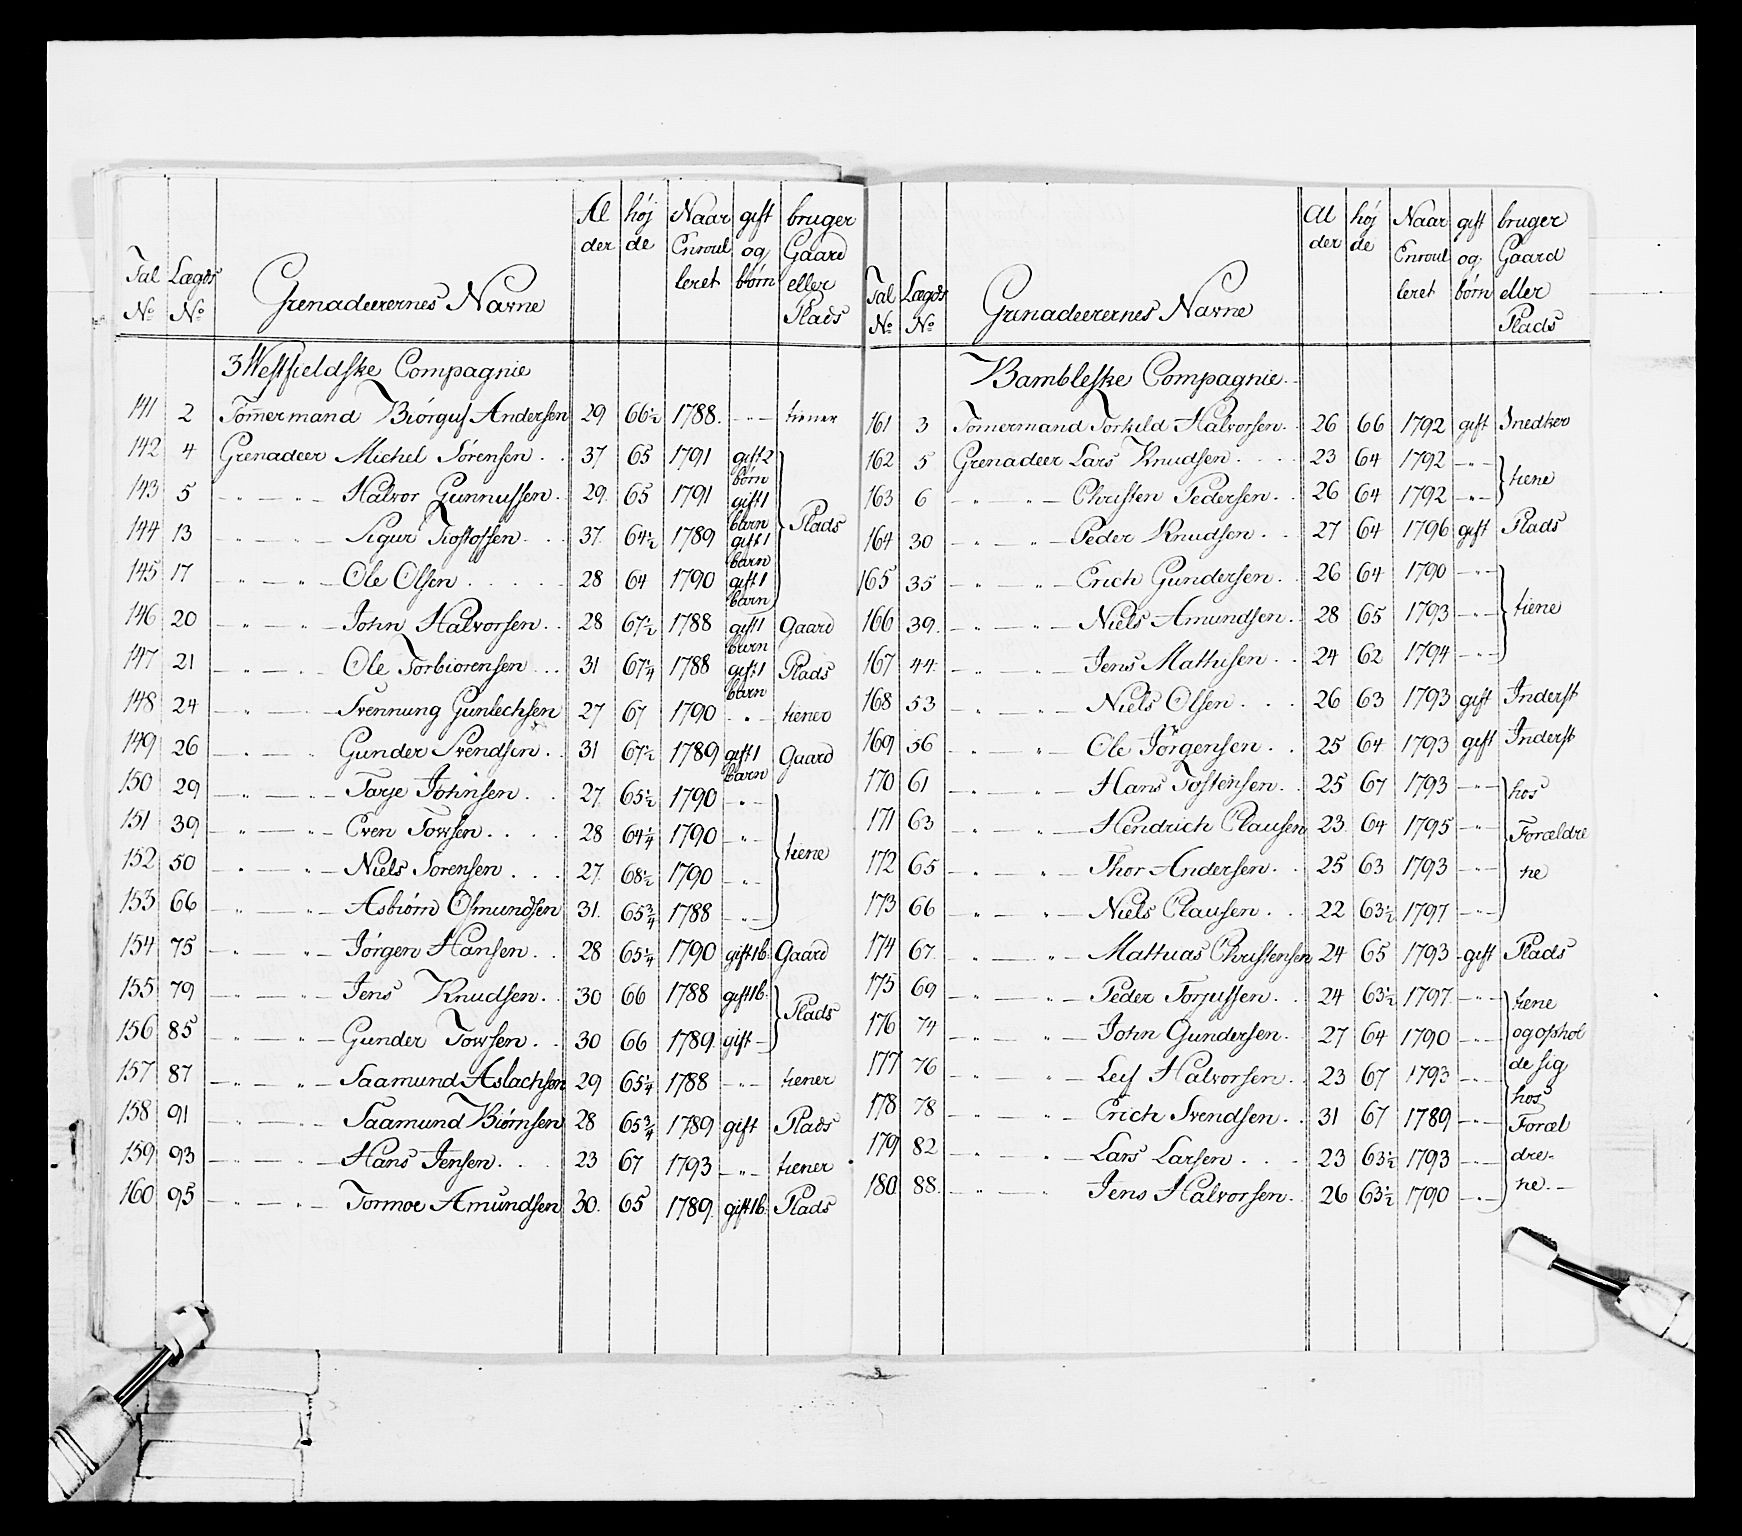 Tal No Lægds No Grenadeerernes Navne Al der høj de Naar Enroul leret gift og børn bruger Gaard eller Plads
3 Westfieldske Compagnie
141 2 Tom̄ermand Biórguf Andersen 29 66½ 1788. -"- tiener
142 4 Grenadeer Michel Sørensen . . 37 65 1791 gift 2 børn
143 5 -"-"- Halvor Gunnussen . 29. 65 1791 gift 1 barn
144 13 -"-"- Sigur Tiostofsen . . . 37. 64½ 1789 gift 1 barn } Plads
145 17 -"-"- Ole Olsen . . . . . 28 64 1790 gift 1 barn
146 20 -"-"- John Halvorsen . . 28 67½ 1788 gift 1 barn Gaard
147 21 -"-"- Ole Torbiorensen . . . 31 67¼ 1788 gift 1 barn Plads
148 24 -"-"- Svennung Gunlechsen 27 67 1790 -"- tiener
149 26 -"-" Gunder Svendsen . . 31 67½ 1789 gift 1 barn Gaard
150 29 -"-"- Tarje Johnsen . . 27. 65½ 1790 -"-
151 39 -"-"- Even Tovsen . . . . 28 64¼ 1790 -"-
152 50 "-"- Niels Sorensen . . . 27. 68½ 1790 -"- } tiene
153 66 "-"- Asbiørn Osmundsen 31. 65¾ 1788 -"-
154 75 -"-"- Jørgen Hansen . . 28 65¼ 1790 gift 1b. Gaard
155 79 -"-"- Jens Knudsen . . 30 66 1788 gift 1b.
156 85 -"-"- Gunder Tovsen . . 30 66 1789. gift - } Plads
157 87 -"-"- Saamund Aslachsen 29 65¼ 1788 -"- tiener
158 91 -"-"- Saamund Biørnsen 28 65¾ 1789 gift Plads
159 93 -"-"- Hans Jensen . . . 23 67 1793 -"- tiener
160 95 -"-"- Tormoe Amundsen 30. 65 1789. gift 1b. Plads
Tal No Lægds No Grenadeerernes Navne Al der høj de Naar Enroul leret gift og børn bruger Gaard eller Plads
Bambleske Compagnie
161 3 Tomermand Torkild Halvorsen . 26 66 1792 gift Snedker
162 5 Grenadeer Lars Knudsen . . . . 23 64 1792 -"-
163 6 "-"- Christen Pedersen . . 26 64 1792 -"- } tiene
164 30 -"-"- Peder Knudsen . . 27 64 1796 gift Plads
165 35 -"-"- Erich Gundersen . . 26 64 1790 -"-
166 39. -"-"- Niels Amundsen . 28 65 1793 -"- } tiene
167 44 -"-"- Jens Mathisen . . 24 62 1794 -"-
168 53 -"-"- Niels Olsen . . . 26 63 1793 gift Inderst
169 56 -"-"- Ole Jørgensen . . 25 64 1793 gift Inderst
170 61 -"-"- Hans Tostensen . . 25 67 1793 -"- hos
171 63 -"-"- Hendrich Clausen 23. 64 1795 -"- } Forældre
172 65 -"-"- Thor Andersen . . 25 63 1793 -"- ne
173 66 -"-"- Niels Clausen . . 22 63½ 1797 -"-
174 67. -"-"- Mathias Christensen 24 65 1793 gift Plads
175 69 -"-"- Peder Torjussen . . 24 63½ 1797. -"- tiene
176 74 -"-"- John Gundersen . 27 64 1790 -"- og ophol
177 76 -"-"- Leif Halvorsen . . 23 67 1793 -"- de sig
hos
178 78 -"-"- Erich Svendsen . . 31 67 1789 -"- Foræl
179 82 -"-"- Lars Larsen . . . 23 63½ 1793 -"- dre-
180 88. -"-" Jens Halvorsen . . 26 63½ 1790 -"- ne. -